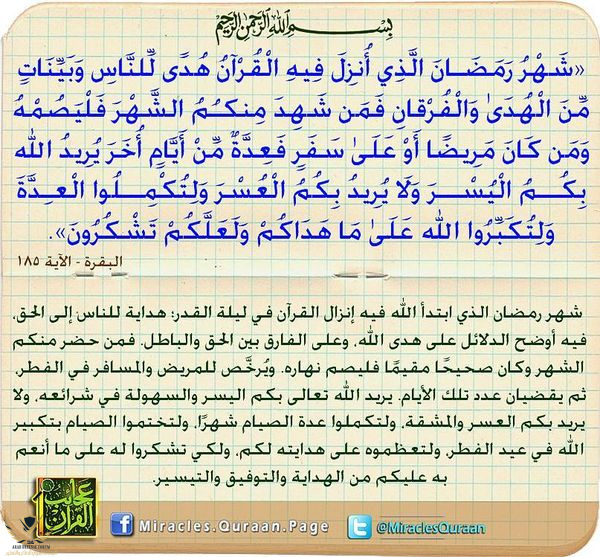 بِسْمِ اللَّهِ الرَّحْمَٰنِ الرَّحِيمِ
«شَهْرُ رَمَضَانَ الَّذِي أُنزِلَ فِيهِ الْقُرْآنُ هُدًى لِّلنَّاسِ وَبَيِّنَاتٍ
مِّنَ الْهُدَىٰ وَالْفُرْقَانِ فَمَن شَهِدَ مِنكُمُ الشَّهْرَ فَلْيَصُمْهُ
وَمَن كَانَ مَرِيضًا أَوْ عَلَىٰ سَفَرٍ فَعِدَّةٌ مِّنْ أَيَّامٍ أُخَرَ يُرِيدُ الله
بِكُمُ الْيُسْرَ وَلَا يُرِيدُ بِكُمُ الْعُسْرَ وَلِتُكْمِلُوا الْعِدَّةَ
وَلِتُكَبِّرُوا الله عَلَىٰ مَا هَدَاكُمْ وَلَعَلَّكُمْ تَشْكُرُونَ».
البقرة - الآية ١٨٥
شهر رمضان الذي ابتدأ الله فيه إنزال القرآن في ليلة القدر؛ هداية للناس إلى الحق،
فيه أوضح الدلائل على هدى الله، وعلى الفارق بين الحق والباطل. فمن حضر منكم
الشهر وكان صحيحًا مقيمًا فليصم نهاره. ويُرخَّص للمريض والمسافر في الفطر،
ثم يقضيان عدد تلك الأيام. يريد الله تعالى بكم اليسر والسهولة في شرائعه، ولا
يريد بكم العسر والمشقة، ولتكملوا عدة الصيام شهرًا، ولتختموا الصيام بتكبير
الله في عيد الفطر، ولتعظموه على هدايته لكم، ولكي تشكروا له على ما أنعم
به عليكم من الهداية والتوفيق والتيسير.
عجائب
القرآن
Miracles.Quraan.Page
@MiraclesQuraan